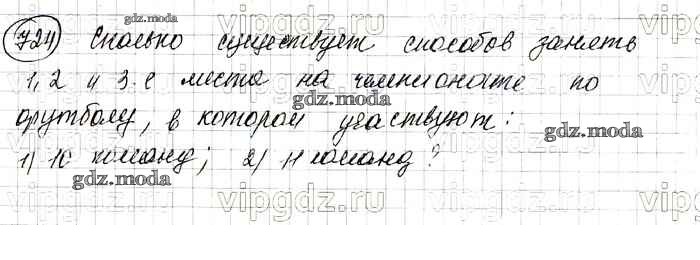 724 Сколько существует способов занять
1, 2 и 3-е места на чемпионате по
футболу, в котором участвуют:
1) 10 команд; 2) 11 команд?
gdz.moda
gdz.moda
gdz.moda
gdz.moda
vipgdz.ru
vipgdz.ru
vipgdz.ru
vipgdz.ru